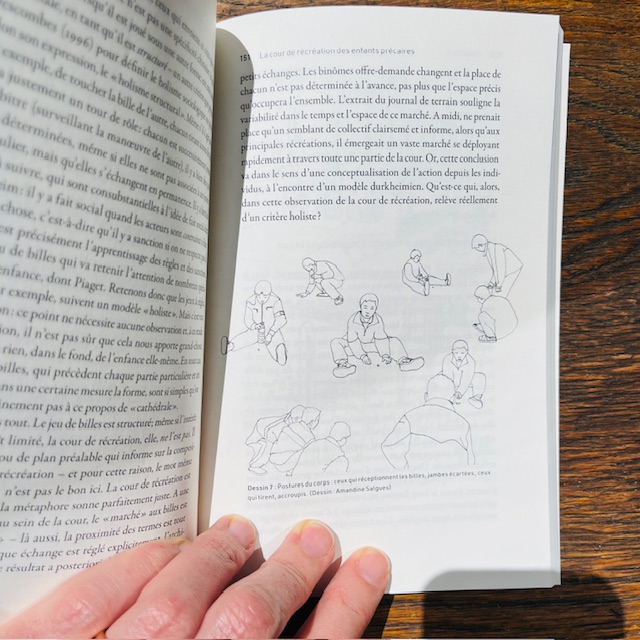 ceux qui
n'est pas une spécifi
'il est josé sous une
, en tant qu'il est structuré
combes (1996) pour définir le holisme
on son expression, le « holisme structural ». Même
exemple, de toucher la bille de l'autre, chacun
justement un tour de rôle : chacun est
bitre (surveillant la manœuvre de l'autre), il y a
déterminées, même si elles ne sont pas
ulier, mais qu'elles s'échangent en permanence. Il y
suivre, qui sont consubstantielles à l'idée de fait
eim : il y a fait social quand les acteurs sont
chose, c'est-à-dire qu'il y a sanction si on ne
est précisément l'apprentissage des règles et des
u de billes qui va retenir l'attention de nombreux
enfance, dont Piaget. Retenons donc que les jeux
r exemple, suivent un modèle « holiste ». Mais
on : ce point ne nécessite aucune observation et, à
il n'est pas sûr que cela nous apporte grand-chose
rien, dans le fond, de l'enfance elle-même. En
billes, qui précèdent chaque partie particulière et
ans une certaine mesure la forme, sont si simples qu'
nement pas à ce propos de « cathédrale ».
tout. Le jeu de billes est structuré ; même si
t limité, la cour de récréation, elle, ne l'est pas. Il
ou de plan préalable qui informe sur la
récréation – et pour cette raison, le mot même
n'est pas le bon ici. La cour de récréation est
la métaphore sonne parfaitement juste. A une
au sein de la cour, le « marché » aux billes est
– là aussi, la proximité des termes est tout
que échange est réglé explicitement,
e résultat a posteriori
151 La cour de récréation des enfants précaires
petits échanges. Les binômes offre-demande changent et la place de
chacun n'est pas déterminée à l'avance, pas plus que l'espace précis
qu'occupera l'ensemble. L'extrait du journal de terrain souligne la
variabilité dans le temps et l'espace de ce marché. A midi, ne prenait
place qu'un semblant de collectif clairsemé et informe, alors qu'aux
principales récréations, il émergeait un vaste marché se déployant
rapidement à travers toute une partie de la cour. Or, cette conclusion
va dans le sens d'une conceptualisation de l'action depuis les indi-
vidus, à l'encontre d'un modèle durkheimien. Qu'est-ce qui, alors,
dans cette observation de la cour de récréation, relève réellement
d'un critère holiste ?
Dessin 7 : Postures du corps : ceux qui réceptionnent les billes, jambes écartées, ceux
qui tirent, accroupis. (Dessin : Amandine Salgues)